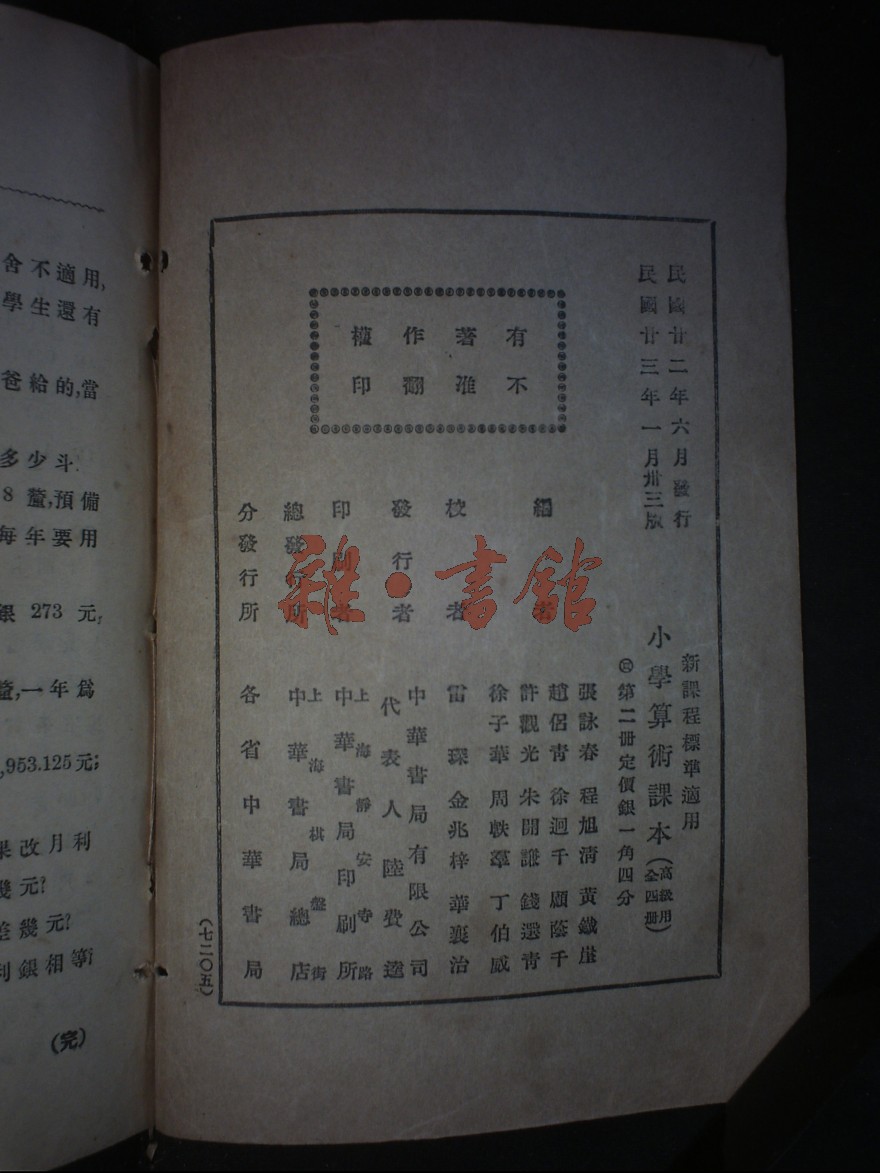 民國廿二年六月發行
民國廿三年一月卅三版
新課程標準適用
小學算術課本(高級用 全四册)
第二册定價銀一角四分
有著作權
不准翻印
編者
張詠春 程旭清 黃鐵崖
趙侶青 徐迥千 顧蔭千
許觀光 朱開謙 錢選青
徐子華 周軼羣 丁伯威
校者
雷琛 金兆梓 華襄治
發行者
中華書局有限公司
代表人 陸費逵
印刷者
上海靜安寺路
中華書局印刷所
總發行所
上海棋盤街
中華書局總店
分發行所
各省中華書局
(七二〇五)
雜·書館
舍不適用,
學生還有
爸給的,當
多少斗
8釐,預備
每年要用
銀273元,
釐,一年爲
,953.125元;
果改月利
幾元?
差幾元?
利銀相等
(完)